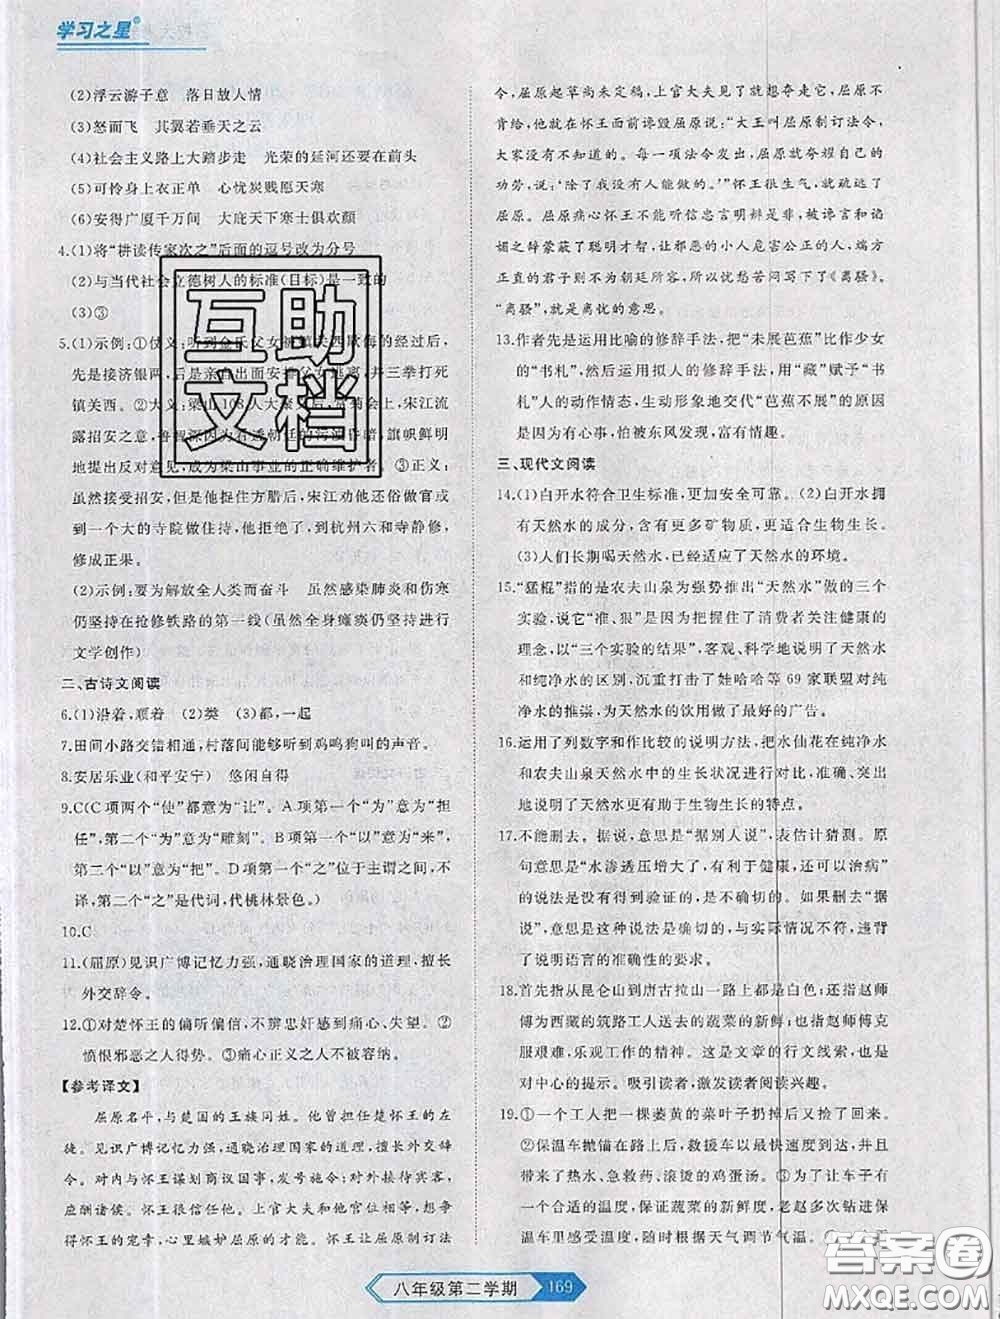 学习之星
(2)浮云游子意 落日故人情
(3)怒而飞 其翼若垂天之云
(4)社会主义路上大踏步走 光荣的延河还要在前头
(5)可怜身上衣正单 心忧炭贱愿天寒
(6)安得广厦千万间 大庇天下寒士俱欢颜
4.(1)将“耕读传家次之”后面的逗号改为分号
(2)与当代社会立德树人的标准(目标)是一致的
(3)③
5.(1)示例:①仗义:听到金氏父女被镇关西欺侮的经过后,
先是接济银两,后是亲自出面安排父女逃离,并三拳打死
镇关西。②大义:梁山108人大聚义后,宋江流
露招安之意,鲁智深因为看透朝廷的污浊昏暗,旗帜鲜明
地提出反对意见,成为梁山事业的正确维护者。③正义:
虽然接受招安,但他捉住方腊后,宋江劝他还俗做官或
到一个大的寺院做住持,他拒绝了,到杭州六和寺静修,
修成正果。
(2)示例:要为解放全人类而奋斗 虽然感染肺炎和伤寒
仍坚持在抢修铁路的第一线(虽然全身瘫痪仍坚持进行
文学创作)
二、古诗文阅读
6.(1)沿着,顺着 (2)类 (3)都,一起
7.田间小路交错相通,村落间能够听到鸡鸣狗叫的声音。
8.安居乐业(和平安宁) 悠闲自得
9.C(C项两个“使”都意为“让”。A项第一个“为”意为“担
任”,第二个“为”意为“雕刻”。B项第一个“以”意为“来”,
第二个“以”意为“把”。D项第一个“之”位于主谓之间,不
译,第二个“之”是代词,代桃林景色。)
10.C
11.(屈原)见识广博记忆力强,通晓治理国家的道理,擅长
外交辞令。
12.①对楚怀王的偏听偏信,不辨忠奸感到痛心、失望。②
愤恨邪恶之人得势。③痛心正义之人不被容纳。
【参考译文】
屈原名平,与楚国的王族同姓。他曾担任楚怀王的左
徒。见识广博记忆力强,通晓治理国家的道理,擅长外交辞
令。对内与怀王谋划商议国事,发号施令;对外接待宾客,
应酬诸侯。怀王很信任他。上官大夫和他职位相同,想争
得怀王的宠幸,心里嫉妒屈原的才能。怀王让屈原制订法
令,屈原起草尚未定稿,上官大夫见了就想夺走它,屈原不
肯给,他就在怀王面前谗毁屈原说:“大王叫屈原制订法令,
大家没有不知道的。每一项法令发出,屈原就夸耀自己的
功劳,说:‘除了我没有人能做的。’”怀王很生气,就疏远了
屈原。屈原痛心怀王不能听信忠言明辨是非,被谗言和谄
媚之辞蒙蔽了聪明才智,让邪恶的小人危害公正的人,端方
正直的君子则不为朝廷所容,所以忧愁苦闷写下了《离骚》。
“离骚”,就是离忧的意思。
13.作者先是运用比喻的修辞手法,把“未展芭蕉”比作少女
的“书札”,然后运用拟人的修辞手法,用“藏”赋予“书
札”人的动作情态,生动形象地交代“芭蕉不展”的原因
是因为有心事,怕被东风发现,富有情趣。
三、现代文阅读
14.(1)白开水符合卫生标准,更加安全可靠。(2)白开水拥
有天然水的成分,含有更多矿物质,更适合生物生长。
(3)人们长期喝天然水,已经适应了天然水的环境。
15.“猛棍”指的是农夫山泉为强势推出“天然水”做的三个
实验,说它“准、狠”是因为它把握住了消费者关注健康的
心,以“三个实验的结果”,客观、科学地说明了天然水
和纯净水的区别,沉重打击了娃哈哈等69家联盟对纯
净水的推崇,为天然水的饮用做了最好的广告。
16.运用了列数字和作比较的说明方法,把水仙花在纯净水
和农夫山泉天然水中的生长状况进行对比,准确、突出
地说明了天然水更有助于生物生长的特点。
17.不能删去。据说,意思是“据别人说”,表估计猜测。原
句意思是“水渗透压增大了,有利于健康,还可以治病”
的说法是没有得到验证的,是不确切的。如果删去“据
说”,意思是这种说法是确切的,与实际情况不符,违背
了说明语言的准确性的要求。
18.首先指从昆仑山到唐古拉山一路上都是白色;还指赵师
傅为西藏的筑路工人送去的蔬菜的新鲜;也指赵师傅克
服艰难,乐观工作的精神。这是文章的行文线索,也是
对中心的提示。吸引读者,激发读者阅读兴趣。
19.①一个工人把一棵萎黄的菜叶子扔掉后又捡了回来。
②保温车抛锚在路上后,救援车以最快速度到达,并且
带了热水、急救药、滚烫的鸡蛋汤。③为了让车子有一
个合适的温度,保证蔬菜的新鲜度,老赵多次钻进保
温车里感受温度,根据天气调节气温。
互助文档
八年级第二学期 169
答案圈
MXQE.COM